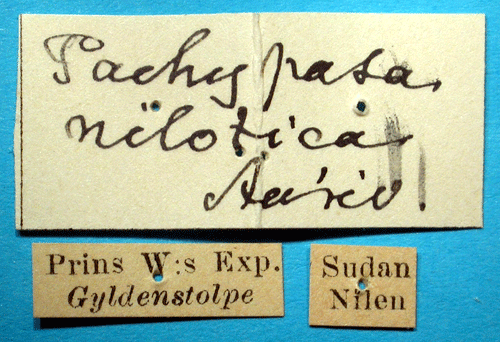 Pachypasa
nilotica
Auriv.
Prins W:s Exp.
Gyldenstolpe
Sudan
Nilen